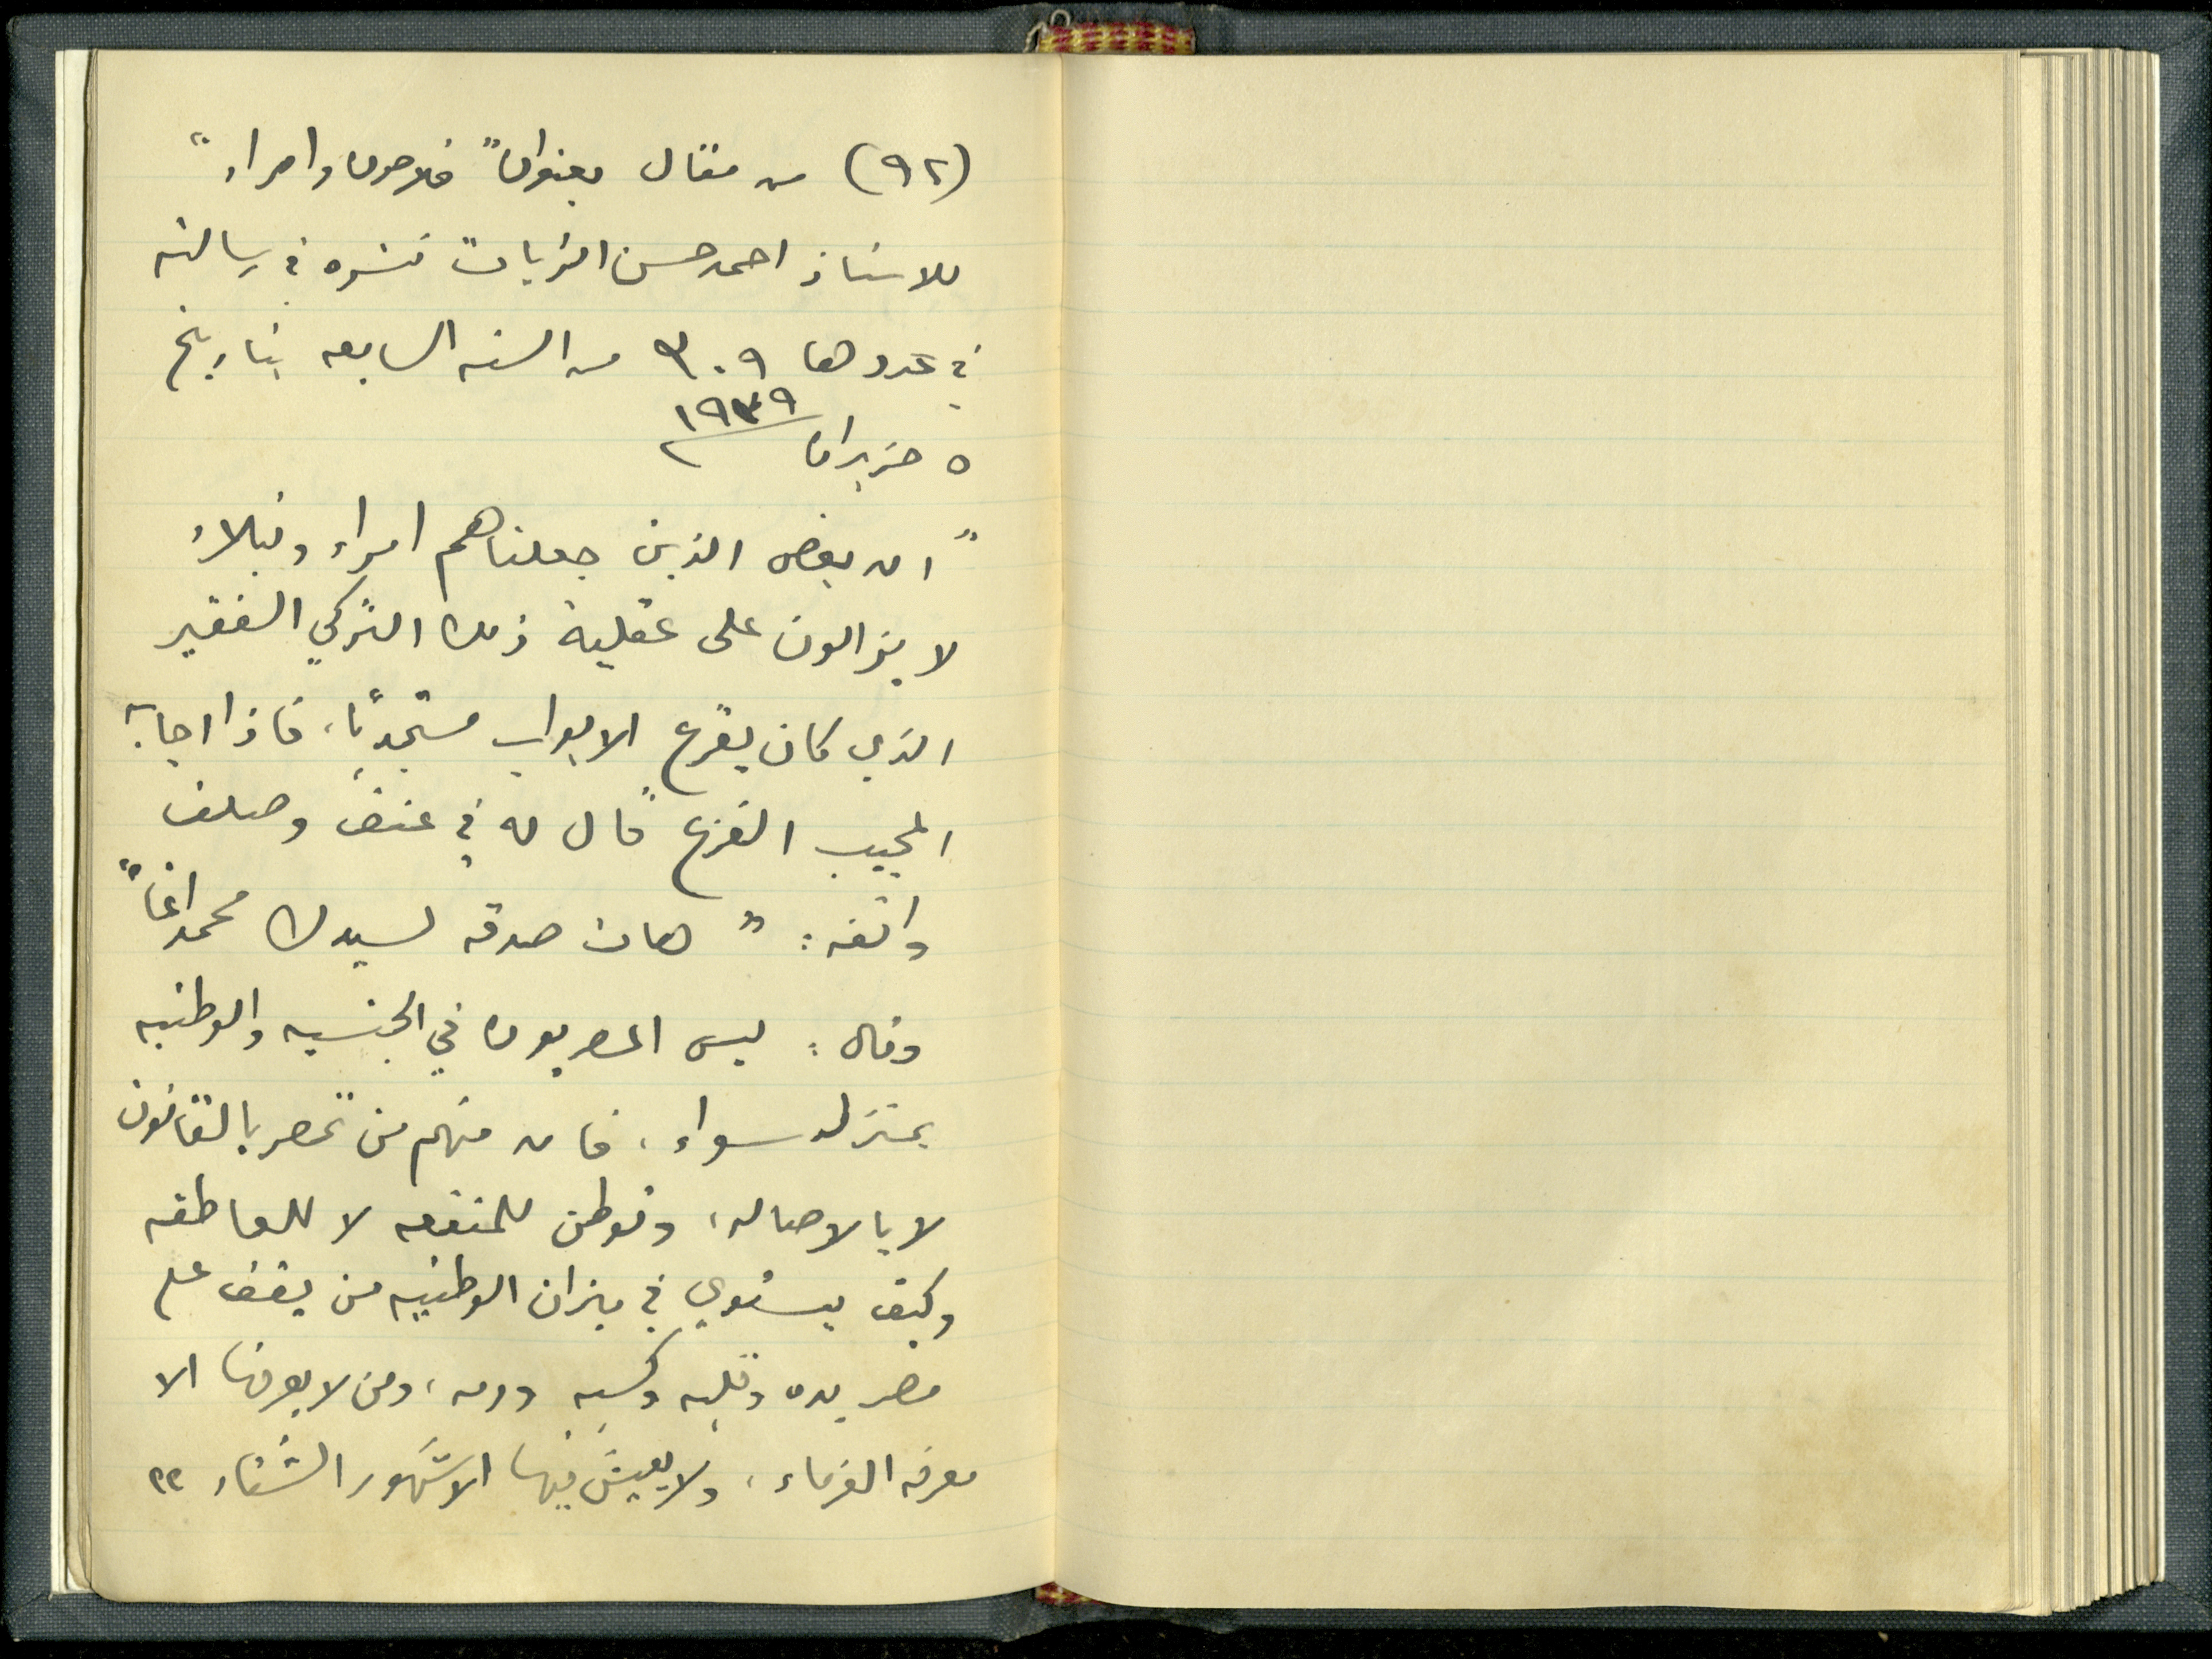 (٩٢) من مقال بعنوان "فلاحون وامراء"
للاستاذ احمد حسن الزيات نشره في رسالته
في عددها ٣٠٩ من السنه السابعه بتاريخ
٥ حزيران ١٩٣٩
"ان بعض الذين جعلناهم امراء ونبلاء
لا يزالون على عقلية ذلك التركي الفقير
الذي كان يقرع الابواب مستجديًا، فاذا اجابه
المجيب الفزع قال له في عنف وصلف
وانفه: "هات صدقه لسيدك محمد اغا"
وقال: ليس المصريون في الجنسيه والوطنيه
بمنزله سواء، فان منهم من تمصر بالقانون
لا بالاصاله، وتوطن للمنفعه لا للعاطفه
وكيف يستوي في ميزان الوطنيه من يقف على
مصر يده وقلبه وكسبه ودمه، ومن لا يعرفها الا
معرفه الغرماء، ولا يعيش فيها الا شهور الشتاء ؟؟